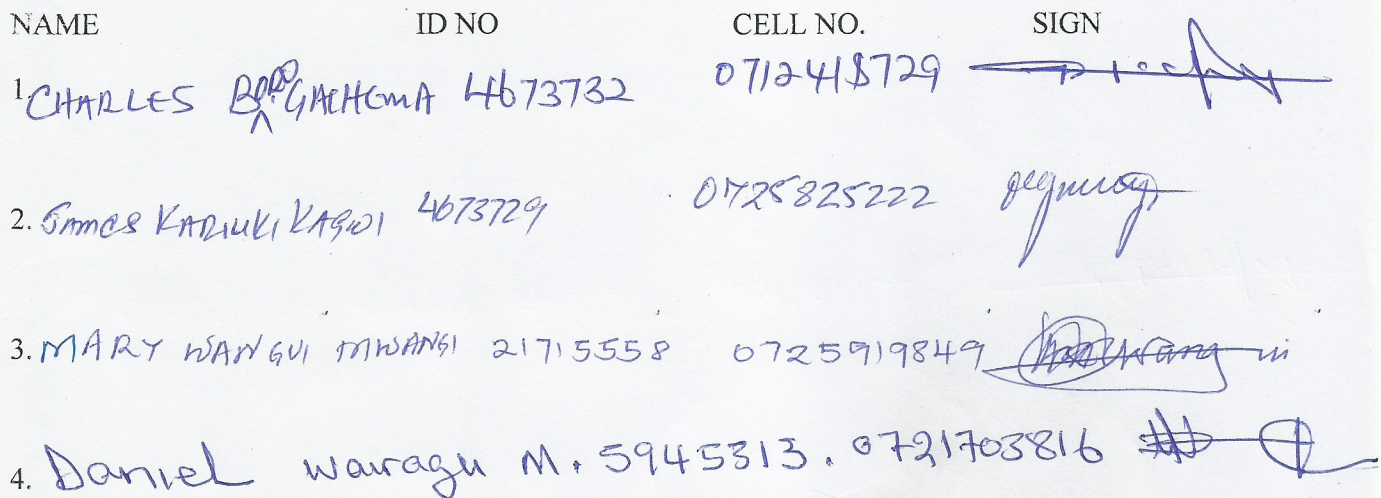 NAME ID NO CELL NO. SIGN
1. CHARLES BORO GACHEMA 4673732 0712418729
2. James KARIUKI KAGWI 4673729 0725825222
3. MARY WANGUI MWANGI 21715558 0725919849
4. Daniel waragu M. 5945313. 0721703816